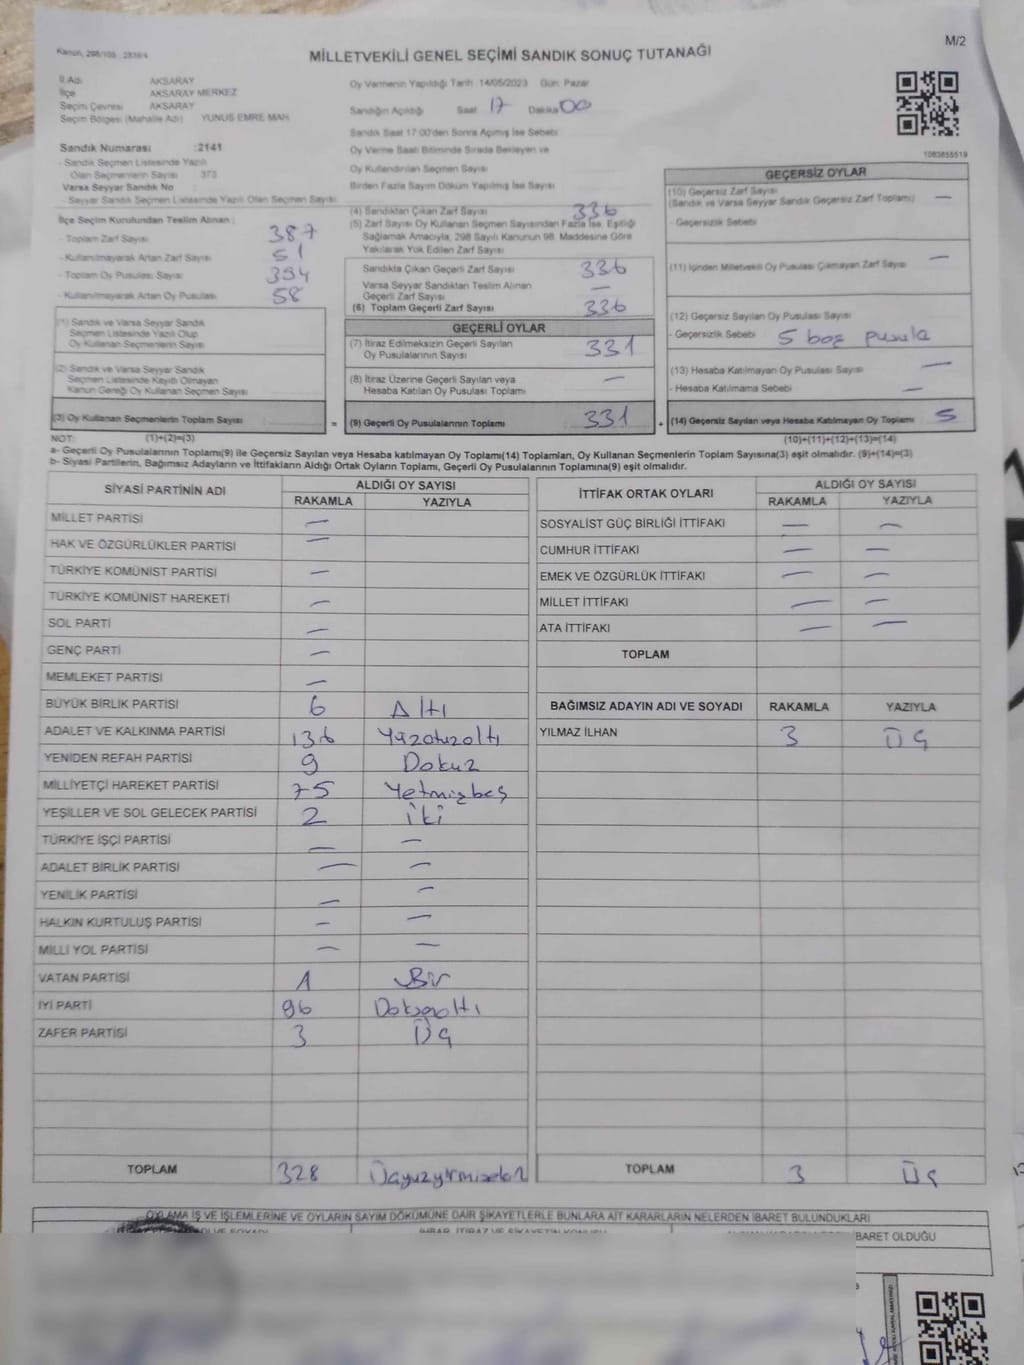 Kanun, 298/105 - 2839/4
M/2
MİLLETVEKİLİ GENEL SEÇİMİ SANDIK SONUÇ TUTANAĞI
İl Adı AKSARAY
İlçe AKSARAY MERKEZ
Seçim Çevresi AKSARAY
Seçim Bölgesi (Mahalle Adı) YUNUS EMRE MAH.
Sandık Numarası :2141
- Sandık Seçmen Listesinde Yazılı
Olan Seçmenlerin Sayısı 373
Varsa Seyyar Sandık No
- Seyyar Sandık Seçmen Listesinde Yazılı Olan Seçmen Sayısı
İlçe Seçim Kurulundan Teslim Alınan :
- Toplam Zarf Sayısı 387
- Kullanılmayarak Artan Zarf Sayısı 51
- Toplam Oy Pusulası Sayısı 394
- Kullanılmayarak Artan Oy Pusulası 58
(1) Sandık ve Varsa Seyyar Sandık
Seçmen Listesinde Yazılı Olup
Oy Kullanan Seçmenlerin Sayısı
(2) Sandık ve Varsa Seyyar Sandık
Seçmen Listesinde Kayıtlı Olmayan
Kanun Gereği Oy Kullanan Seçmen Sayısı
(3) Oy Kullanan Seçmenlerin Toplam Sayısı =
Oy Vermenin Yapıldığı Tarih :14/05/2023 Gün: Pazar
Sandığın Açıldığı Saat 17 Dakika 00
Sandık Saat 17:00'den Sonra Açılmış İse Sebebi
Oy Verme Saati Bitiminde Sırada Bekleyen ve
Oy Kullandırılan Seçmen Sayısı
Birden Fazla Sayım Döküm Yapılmış İse Sayısı
(4) Sandıktan Çıkan Zarf Sayısı 336
(5) Zarf Sayısı Oy Kullanan Seçmen Sayısından Fazla İse, Eşitliği
Sağlamak Amacıyla, 298 Sayılı Kanunun 98. Maddesine Göre
Yakılarak Yok Edilen Zarf Sayısı
Sandıkta Çıkan Geçerli Zarf Sayısı 336
Varsa Seyyar Sandıktan Teslim Alınan
Geçerli Zarf Sayısı —
(6) Toplam Geçerli Zarf Sayısı 336
GEÇERLİ OYLAR
(7) İtiraz Edilmeksizin Geçerli Sayılan
Oy Pusulalarının Sayısı 331
(8) İtiraz Üzerine Geçerli Sayılan veya
Hesaba Katılan Oy Pusulası Toplamı —
(9) Geçerli Oy Pusulalarının Toplamı 331 +
1083855519
GEÇERSİZ OYLAR
(10) Geçersiz Zarf Sayısı
(Sandık ve Varsa Seyyar Sandık Geçersiz Zarf Toplamı) —
- Geçersizlik Sebebi
(11) İçinden Milletvekili Oy Pusulası Çıkmayan Zarf Sayısı —
(12) Geçersiz Sayılan Oy Pusulası Sayısı
- Geçersizlik Sebebi 5 boş pusula
(13) Hesaba Katılmayan Oy Pusulası Sayısı —
- Hesaba Katılmama Sebebi —
(14) Geçersiz Sayılan veya Hesaba Katılmayan Oy Toplamı 5
NOT: (1)+(2)=(3) (10)+(11)+(12)+(13)=(14)
a- Geçerli Oy Pusulalarının Toplamı(9) ile Geçersiz Sayılan veya Hesaba katılmayan Oy Toplamı(14) Toplamları, Oy Kullanan Seçmenlerin Toplam Sayısına(3) eşit olmalıdır. (9)+(14)=(3)
b- Siyasi Partilerin, Bağımsız Adayların ve İttifakların Aldığı Ortak Oyların Toplamı, Geçerli Oy Pusulalarının Toplamına(9) eşit olmalıdır.
SİYASİ PARTİNİN ADI ALDIĞI OY SAYISI
RAKAMLA YAZIYLA
MİLLET PARTİSİ —
HAK VE ÖZGÜRLÜKLER PARTİSİ —
TÜRKİYE KOMÜNİST PARTİSİ —
TÜRKİYE KOMÜNİST HAREKETİ —
SOL PARTİ —
GENÇ PARTİ —
MEMLEKET PARTİSİ —
BÜYÜK BİRLİK PARTİSİ 6 Altı
ADALET VE KALKINMA PARTİSİ 136 Yüzotuzaltı
YENİDEN REFAH PARTİSİ 9 Dokuz
MİLLİYETÇİ HAREKET PARTİSİ 75 Yetmişbeş
YEŞİLLER VE SOL GELECEK PARTİSİ 2 İki
TÜRKİYE İŞÇİ PARTİSİ — —
ADALET BİRLİK PARTİSİ — —
YENİLİK PARTİSİ — —
HALKIN KURTULUŞ PARTİSİ — —
MİLLİ YOL PARTİSİ — —
VATAN PARTİSİ 1 Bir
İYİ PARTİ 96 Doksanaltı
ZAFER PARTİSİ 3 Üç
TOPLAM 328 Üçyüzyirmisekiz
İTTİFAK ORTAK OYLARI ALDIĞI OY SAYISI
RAKAMLA YAZIYLA
SOSYALİST GÜÇ BİRLİĞİ İTTİFAKI — —
CUMHUR İTTİFAKI — —
EMEK VE ÖZGÜRLÜK İTTİFAKI — —
MİLLET İTTİFAKI — —
ATA İTTİFAKI — —
TOPLAM
BAĞIMSIZ ADAYIN ADI VE SOYADI RAKAMLA YAZIYLA
YILMAZ İLHAN 3 Üç
TOPLAM 3 Üç
OYLAMA İŞ VE İŞLEMLERİNE VE OYLARIN SAYIM DÖKÜMÜNE DAİR ŞİKAYETLERLE BUNLARA AİT KARARLARIN NELERDEN İBARET BULUNDUKLARI
BARET OLDUĞU